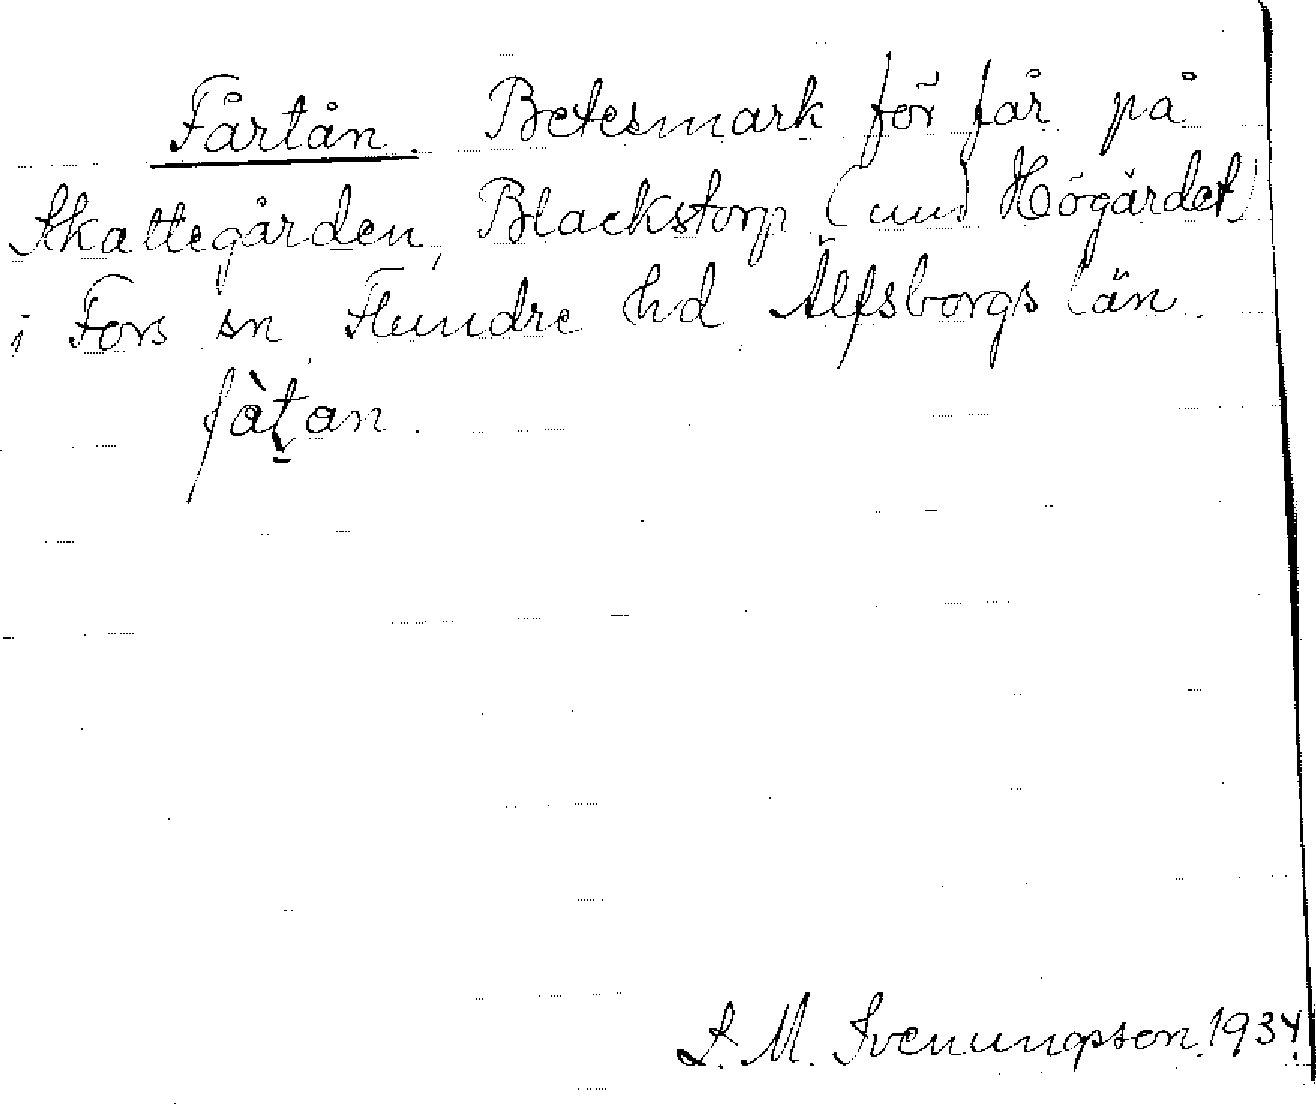 Fårtån. Betesmark för får på
Skattegården, Blackstorp (und Högärdet)
i Fors sn Flundre hd Älfsborgs län.
fàt̬an.
S. M. Svenungsson. 1934.